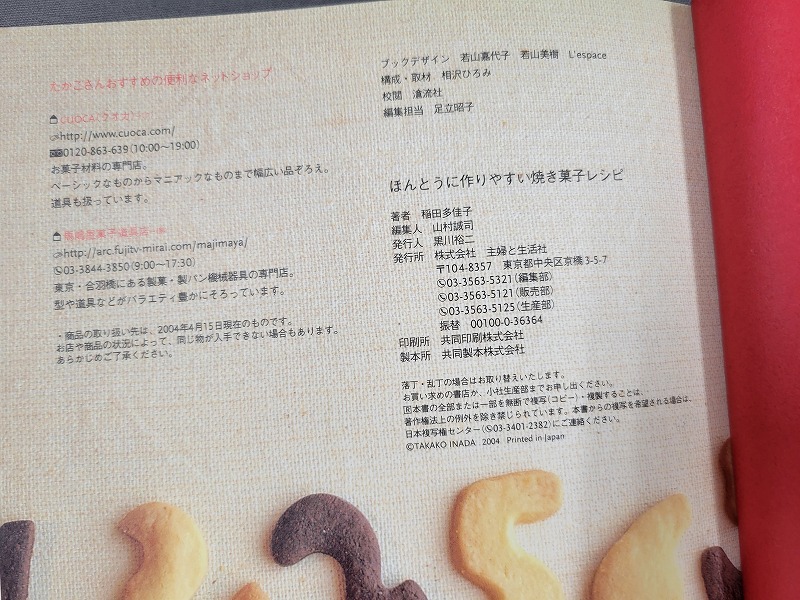 たかこさんおすすめの便利なネットショップ
CUOCA(クオカ)
http://www.cuoca.com/
0120-863-639(10:00~19:00)
お菓子材料の専門店。
ベーシックなものからマニアックなものまで幅広い品ぞろえ。
道具も扱っています。
http://arc.fujitv-mirai.com/majimaya/
03-3844-3850(9:00~17:30)
東京・合羽橋にある製菓・製パン機械器具の専門店。
型や道具などがバラエティ豊かにそろっています。
・商品の取り扱い先は、2004年4月15日現在のものです。
お店や商品の状況によって、同じ物が入手できない場合もあります。
あらかじめご了承ください。
ブックデザイン 若山嘉代子 若山美樹 L'espace
構成・取材 相沢ひろみ
校閲 滄流社
編集担当 足立昭子
ほんとうに作りやすい焼き菓子レシピ
著者 稲田多佳子
編集人 山村誠司
発行人 黒川裕二
発行所 株式会社 主婦と生活社
〒104-8357 東京都中央区京橋3-5-7
03-3563-5321(編集部)
03-3563-5121(販売部)
03-3563-5125(生産部)
振替 00100-0-36364
印刷所 共同印刷株式会社
製本所 共同製本株式会社
落丁・乱丁の場合はお取り替えいたします。
お買い求めの書店か、小社生産部までお申し出ください。
Ⓡ本書の全部または一部を無断で複写(コピー)・複製することは、
著作権法上の例外を除き禁じられています。本書からの複写を希望される場合は、
日本複写権センター(03-3401-2382)にご連絡ください。
©TAKAKO INADA 2004 Printed in Japan